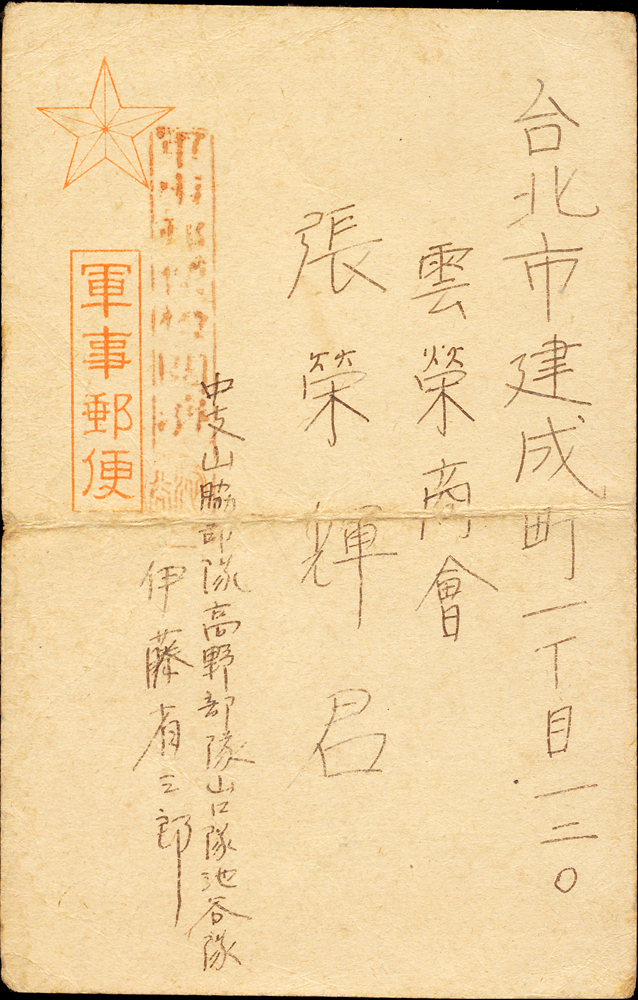 台北市建成町一丁目一二〇
雲榮商會
張榮輝君
中支山脇部隊高野部隊山口隊池谷隊
伊藤省三郎
軍事郵便